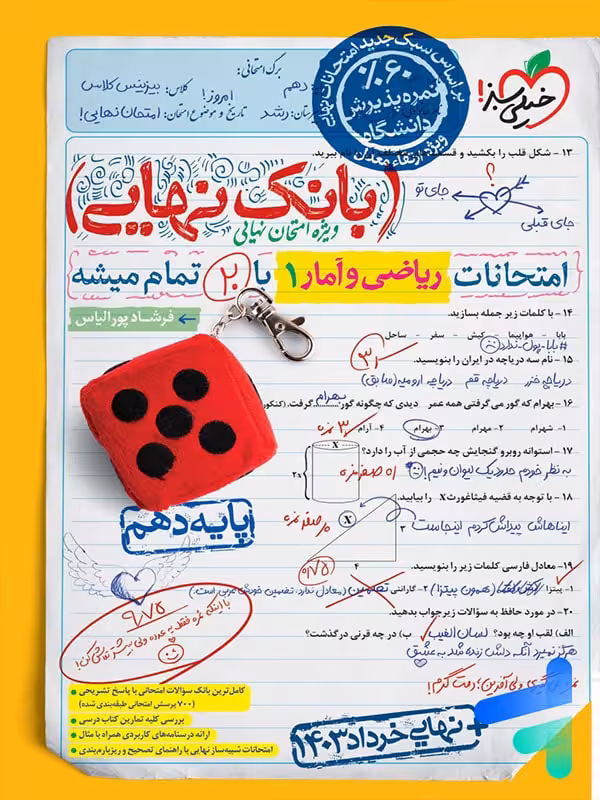 برگ امتحانی:
دهم
کلاس: بیزینس کلاس
امروز!
رشد
تاریخ و موضوع امتحان: امتحان نهایی!
بر اساس سبک جدید امتحانات نهایی
۶۰٪
نمره پذیرش
دانشگاه
ویژه ارتقاء معدل
خیلی سبز!
۱۳ - شکل قلب را بکشید و
ببرید.
؟
جای تو
جای قبلی
(بانک نهایی)
ویژه امتحان نهایی
امتحانات ریاضی و آمار ۱ با ۲۰ تمام میشه
فرشاد پورالیاس
۱۴ - با کلمات زیر جمله بسازید.
بابا - هواپیما - کیش - سفر - ساحل
#بابا-پول-نداره
۱۵ - نام سه دریاچه در ایران را بنویسید.
دریاچه خزر دریاچه قم دریاچه ارومیه (سابق)
۱۶ - بهرام که گور می‌گرفتی همه عمر دیدی که چگونه گور بهرام گرفت. (کنکور
۱- شهرام ۲- مهرام ۳- بهرام ۴- آرام
۱۷ - استوانه روبرو گنجایش چه حجمی از آب را دارد؟
به نظر خودم حدود یک لیوان و نیم!
X
۲x
۱۸ - با توجه به قضیه فیثاغورث X را بیابید.
ایناهاش پیداش کردم اینجاست
X
۲
۴
پایه دهم
۱۹- معادل فارسی کلمات زیر را بنویسید.
۱- پیتزا (همون پیتزا) ۲- گارانتی تضمین (معادل ندارد. تضمین خودش عربی است.)
۲۰- در مورد حافظ به سؤالات زیر جواب بدهید.
الف) لقب او چه بود؟ لسان الغیب ب) در چه قرنی درگذشت؟
هرگز نمیرد آنکه دلش زنده شد به عشق
نمره نمی‌گیری ولی آفرین؛ دمت گرم!
کامل‌ترین بانک سؤالات امتحانی با پاسخ تشریحی
(۷۰۰ پرسش امتحانی طبقه‌بندی شده)
بررسی کلیه تمارین کتاب درسی
ارائه درسنامه‌های کاربردی همراه با مثال
امتحانات شبیه‌ساز نهایی با راهنمای تصحیح و ریزبارم‌بندی
+ نهایی خرداد ۱۴۰۳